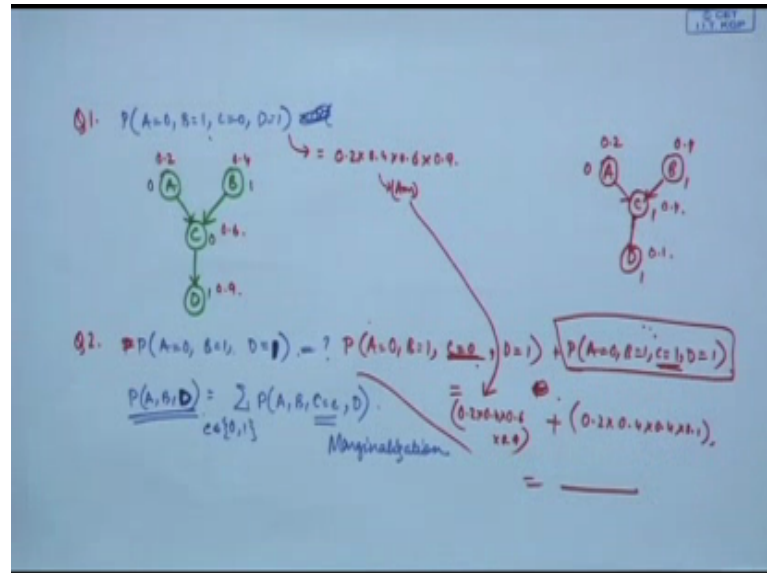 © CET
I.I.T. KGP
Q1. P(A=0, B=1, C=0, D=1)
→ = 0.2×0.4×0.6×0.9.
0.2
0.4
0 A
B 1
C 0 0.6.
D 1 0.9.
0.2
0 A
B 1
C 1 0.4.
0.1.
D
1
Q2. P(A=0, B=1, D=1) = ? P(A=0, B=1, C=0, D=1) + P(A=0, B=1, C=1, D=1)
P(A,B,D) = ∑ P(A,B,C=c,D).
c∈{0,1}
Marginalization
= (0.2×0.4×0.6×0.9) + (0.2×0.4×0.4×0.1).
=